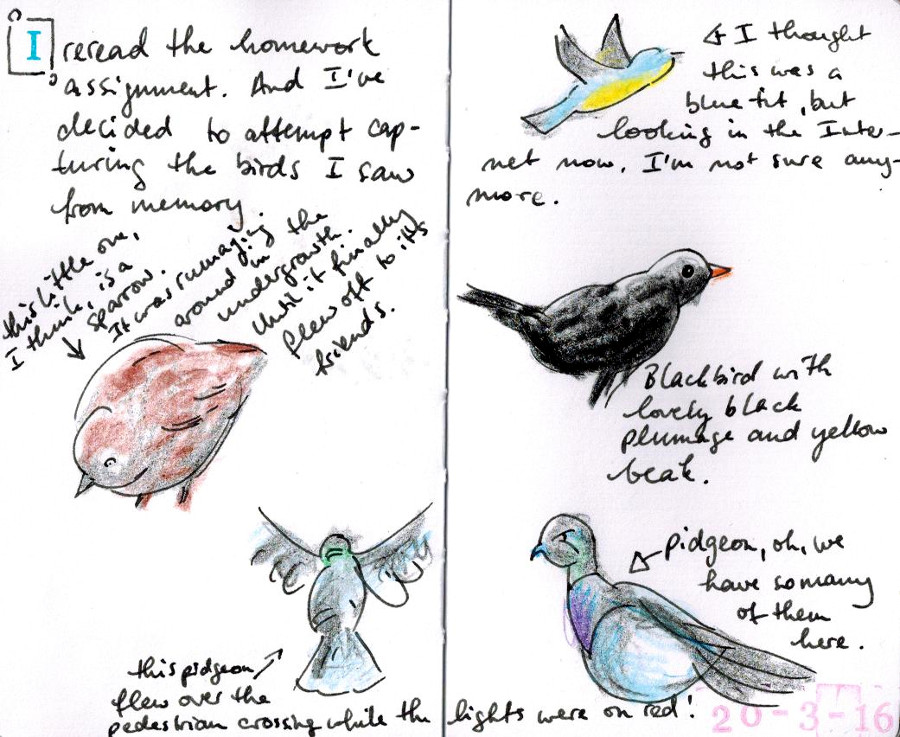 I reread the homework
assignment. And I've
decided to attempt cap-
turing the birds I saw
from memory.
this little one,
I think, is a
sparrow.
It was rumaging
around in the
undergrowth.
Until it finally
flew off to its
friends.
this pidgeon
flew over the
pedestrian crossing while the lights were on red!
I thought
this was a
blue tit, but
looking in the Inter-
net now, I'm not sure any-
more.
Blackbird with
lovely black
plumage and yellow
beak.
pidgeon, oh, we
have so many
of them
here.
20-3-16